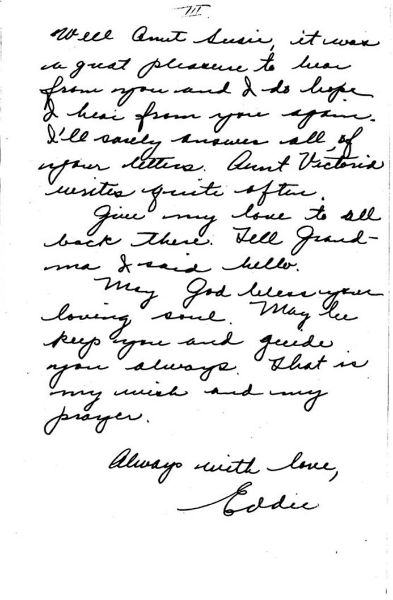 III
Well Aunt Susie, it was
a great pleasure to hear
from you and I do hope
I hear from you again.
I'll surely answer all, of
your letters. Aunt Victoria
writes quite often.
Give my love to all
back there. Tell Grand-
ma I said hello.
May God bless your
loving soul. May he
keep you and guide
you always. That is
my wish and my
prayer.
Always with love,
Eddie